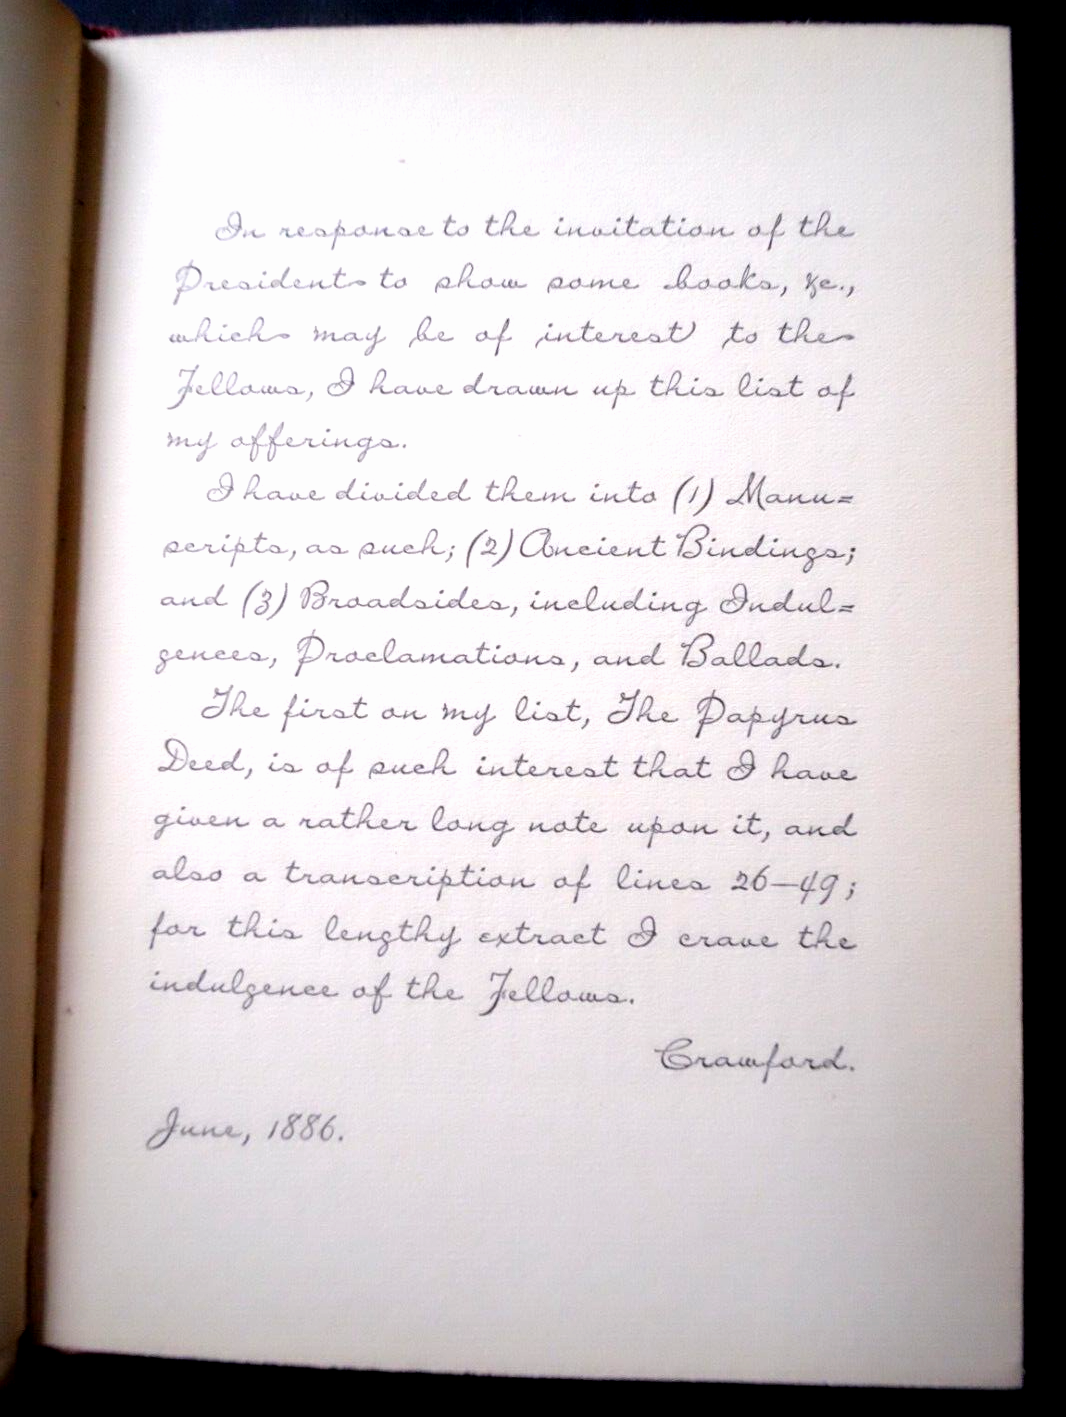 In response to the invitation of the
President to show some books, &c.,
which may be of interest to the
Fellows, I have drawn up this list of
my offerings.
I have divided them into (1) Manu=
scripts, as such; (2) Ancient Bindings;
and (3) Broadsides, including Indul=
gences, Proclamations, and Ballads.
The first on my list, The Papyrus
Deed, is of such interest that I have
given a rather long note upon it, and
also a transcription of lines 26—49;
for this lengthy extract I crave the
indulgence of the Fellows.
Crawford.
June, 1886.